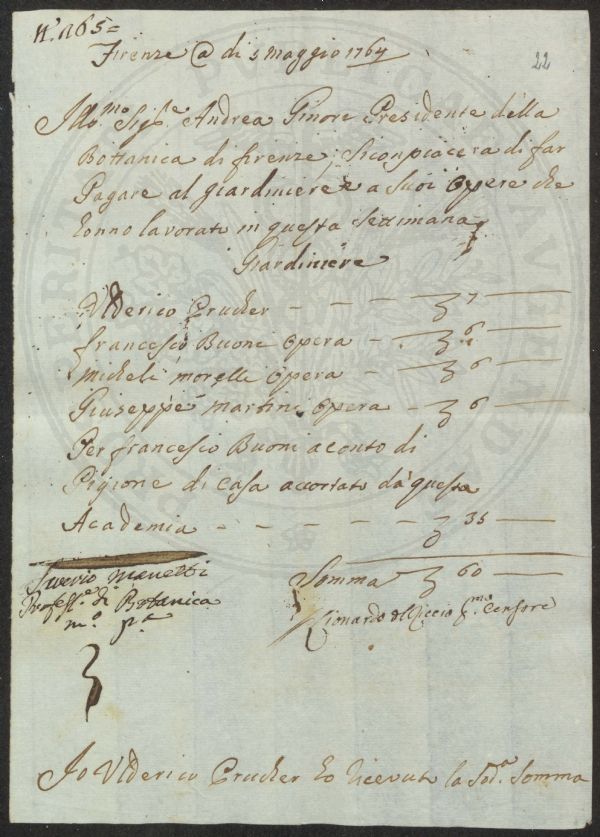 N.° 265=
Firenze @ di 5 Maggio 1764
22
Illo.mo Sig.re Andrea Ginore Presidente della
Bottanica di firenze, si conpiacera di far
Pagare al giardiniere e a Suoi Opere che
honno lavorato in questa Settimana
Giardiniere
Vlderico Prucher - - - - 7
francescho Buoni Opera - - 6
Micheli morelli Opera - - 6
Giuseppe martini Opera - 6
Per francescho Buoni a conto di
Pigione di Casa accortato da questa
Academia - - - - - - 35
Somma 60
Saverio Manetti
Profess.e di Botanica
m.o p.a
Lionardo del Riccio P.mo Censore
Io Vlderico Prucher ho ricevuto la Sod.a Somma